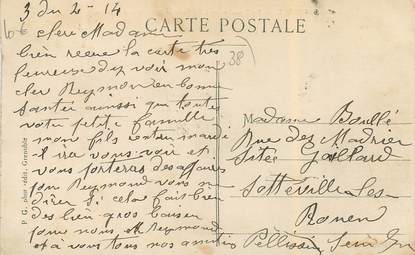 3 du 2 - 14
CARTE POSTALE
cher Madame
bien recue la carte tres
heureuse dy voir mon
cher Reymond en bonne
santée aussi que toutes
votre petite famille
mon fils rentre mardi
il ira vous voir et
vous porteras des affaires
pour Reymond vous
dire si cela fait bien
des bien gros baiser
pour nous Reymond
et a vous tous nos amitiés
38
P. G. phot.-édit., Grenoble
Madame Boullé
Rue des Madrier
Sitée Gaillard
Sotteville-les-
Rouen
Seine Inf